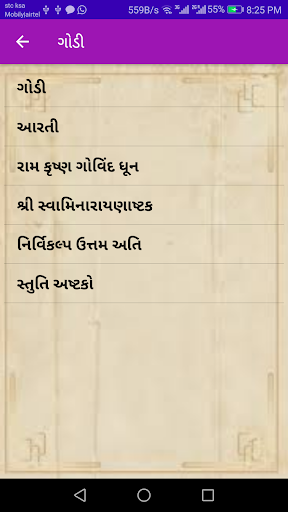 stc ksa
Mobily|airtel
559B/s
3G
2G
55%
8:25 PM
ગોડી
ગોડી
આરતી
રામ કૃષ્ણ ગોવિંદ ધૂન
શ્રી સ્વામિનારાયણાષ્ટક
નિર્વિકલ્પ ઉત્તમ અતિ
સ્તુતિ અષ્ટકો